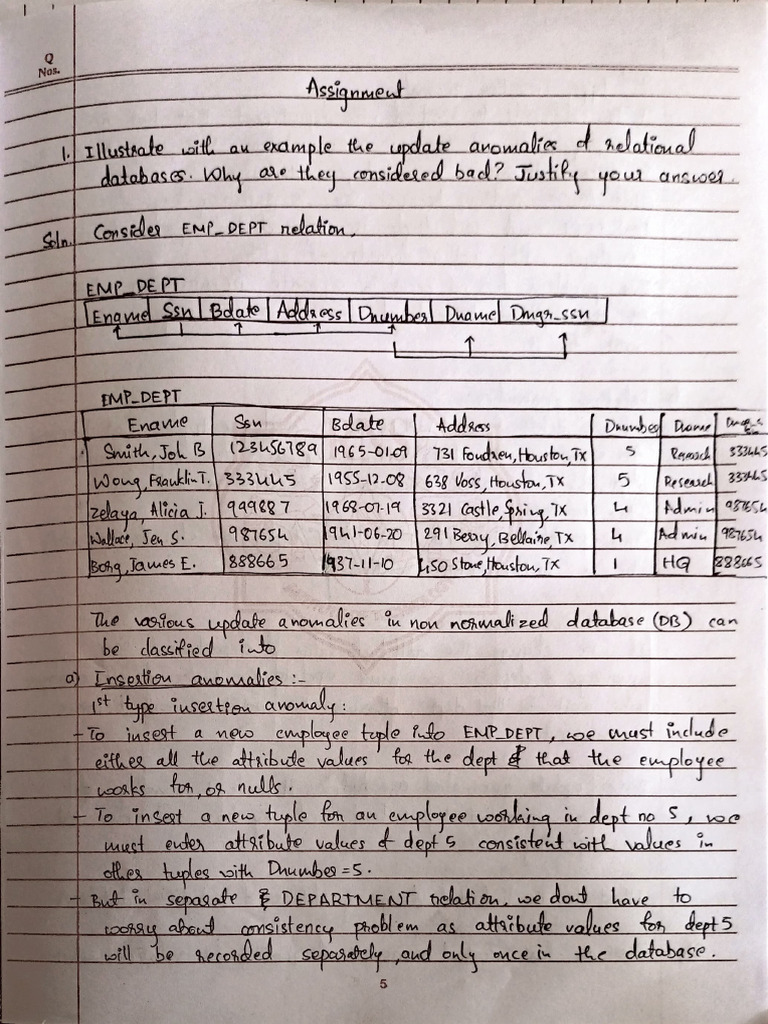 Q
Nos.
Assignment
1. Illustrate with an example the update anomalies of relational
databases. Why are they considered bad? Justify your answer.
Soln. Consider EMP_DEPT relation.
EMP_DEPT
Ename Ssn Bdate Address Dnumber Dname Dmgr_ssn
EMP_DEPT
Ename Ssn Bdate Address Dnumber Dname
Smith, Joh B 123456789 1965-01-09 731 Fondren, Houston, TX 5 Research 333445
Wong, Franklin T. 333445 1955-12-08 638 Voss, Houston, TX 5 Research 333445
Zelaya, Alicia J. 999887 1968-07-19 3321 Castle, Spring, TX 4 Admin 987654
Wallace, Jen S. 987654 1941-06-20 291 Berry, Bellaire, TX 4 Admin 987654
Borg, James E. 888665 1937-11-10 450 Stone, Houston, TX 1 HQ 888665
The various update anomalies in non normalized database (DB) can
be classified into
a) Insertion anomalies :-
1st type insertion anomaly:
- To insert a new employee tuple into EMP_DEPT, we must include
either all the attribute values for the dept that the employee
works for, or nulls.
- To insert a new tuple for an employee working in dept no 5, we
must enter attribute values of dept 5 consistent with values in
other tuples with Dnumber=5.
- But in separate DEPARTMENT relation, we dont have to
worry about consistency problem as attribute values for dept 5
will be recorded separately, and only once in the database.
5